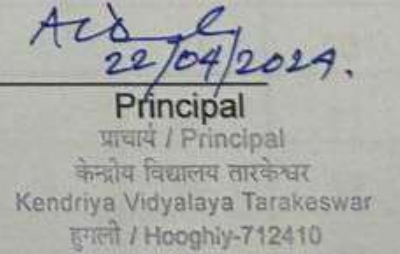 22/04/2024.
Principal
प्राचार्य / Principal
केन्द्रीय विद्यालय तारकेश्वर
Kendriya Vidyalaya Tarakeswar
हुगली / Hooghly-712410